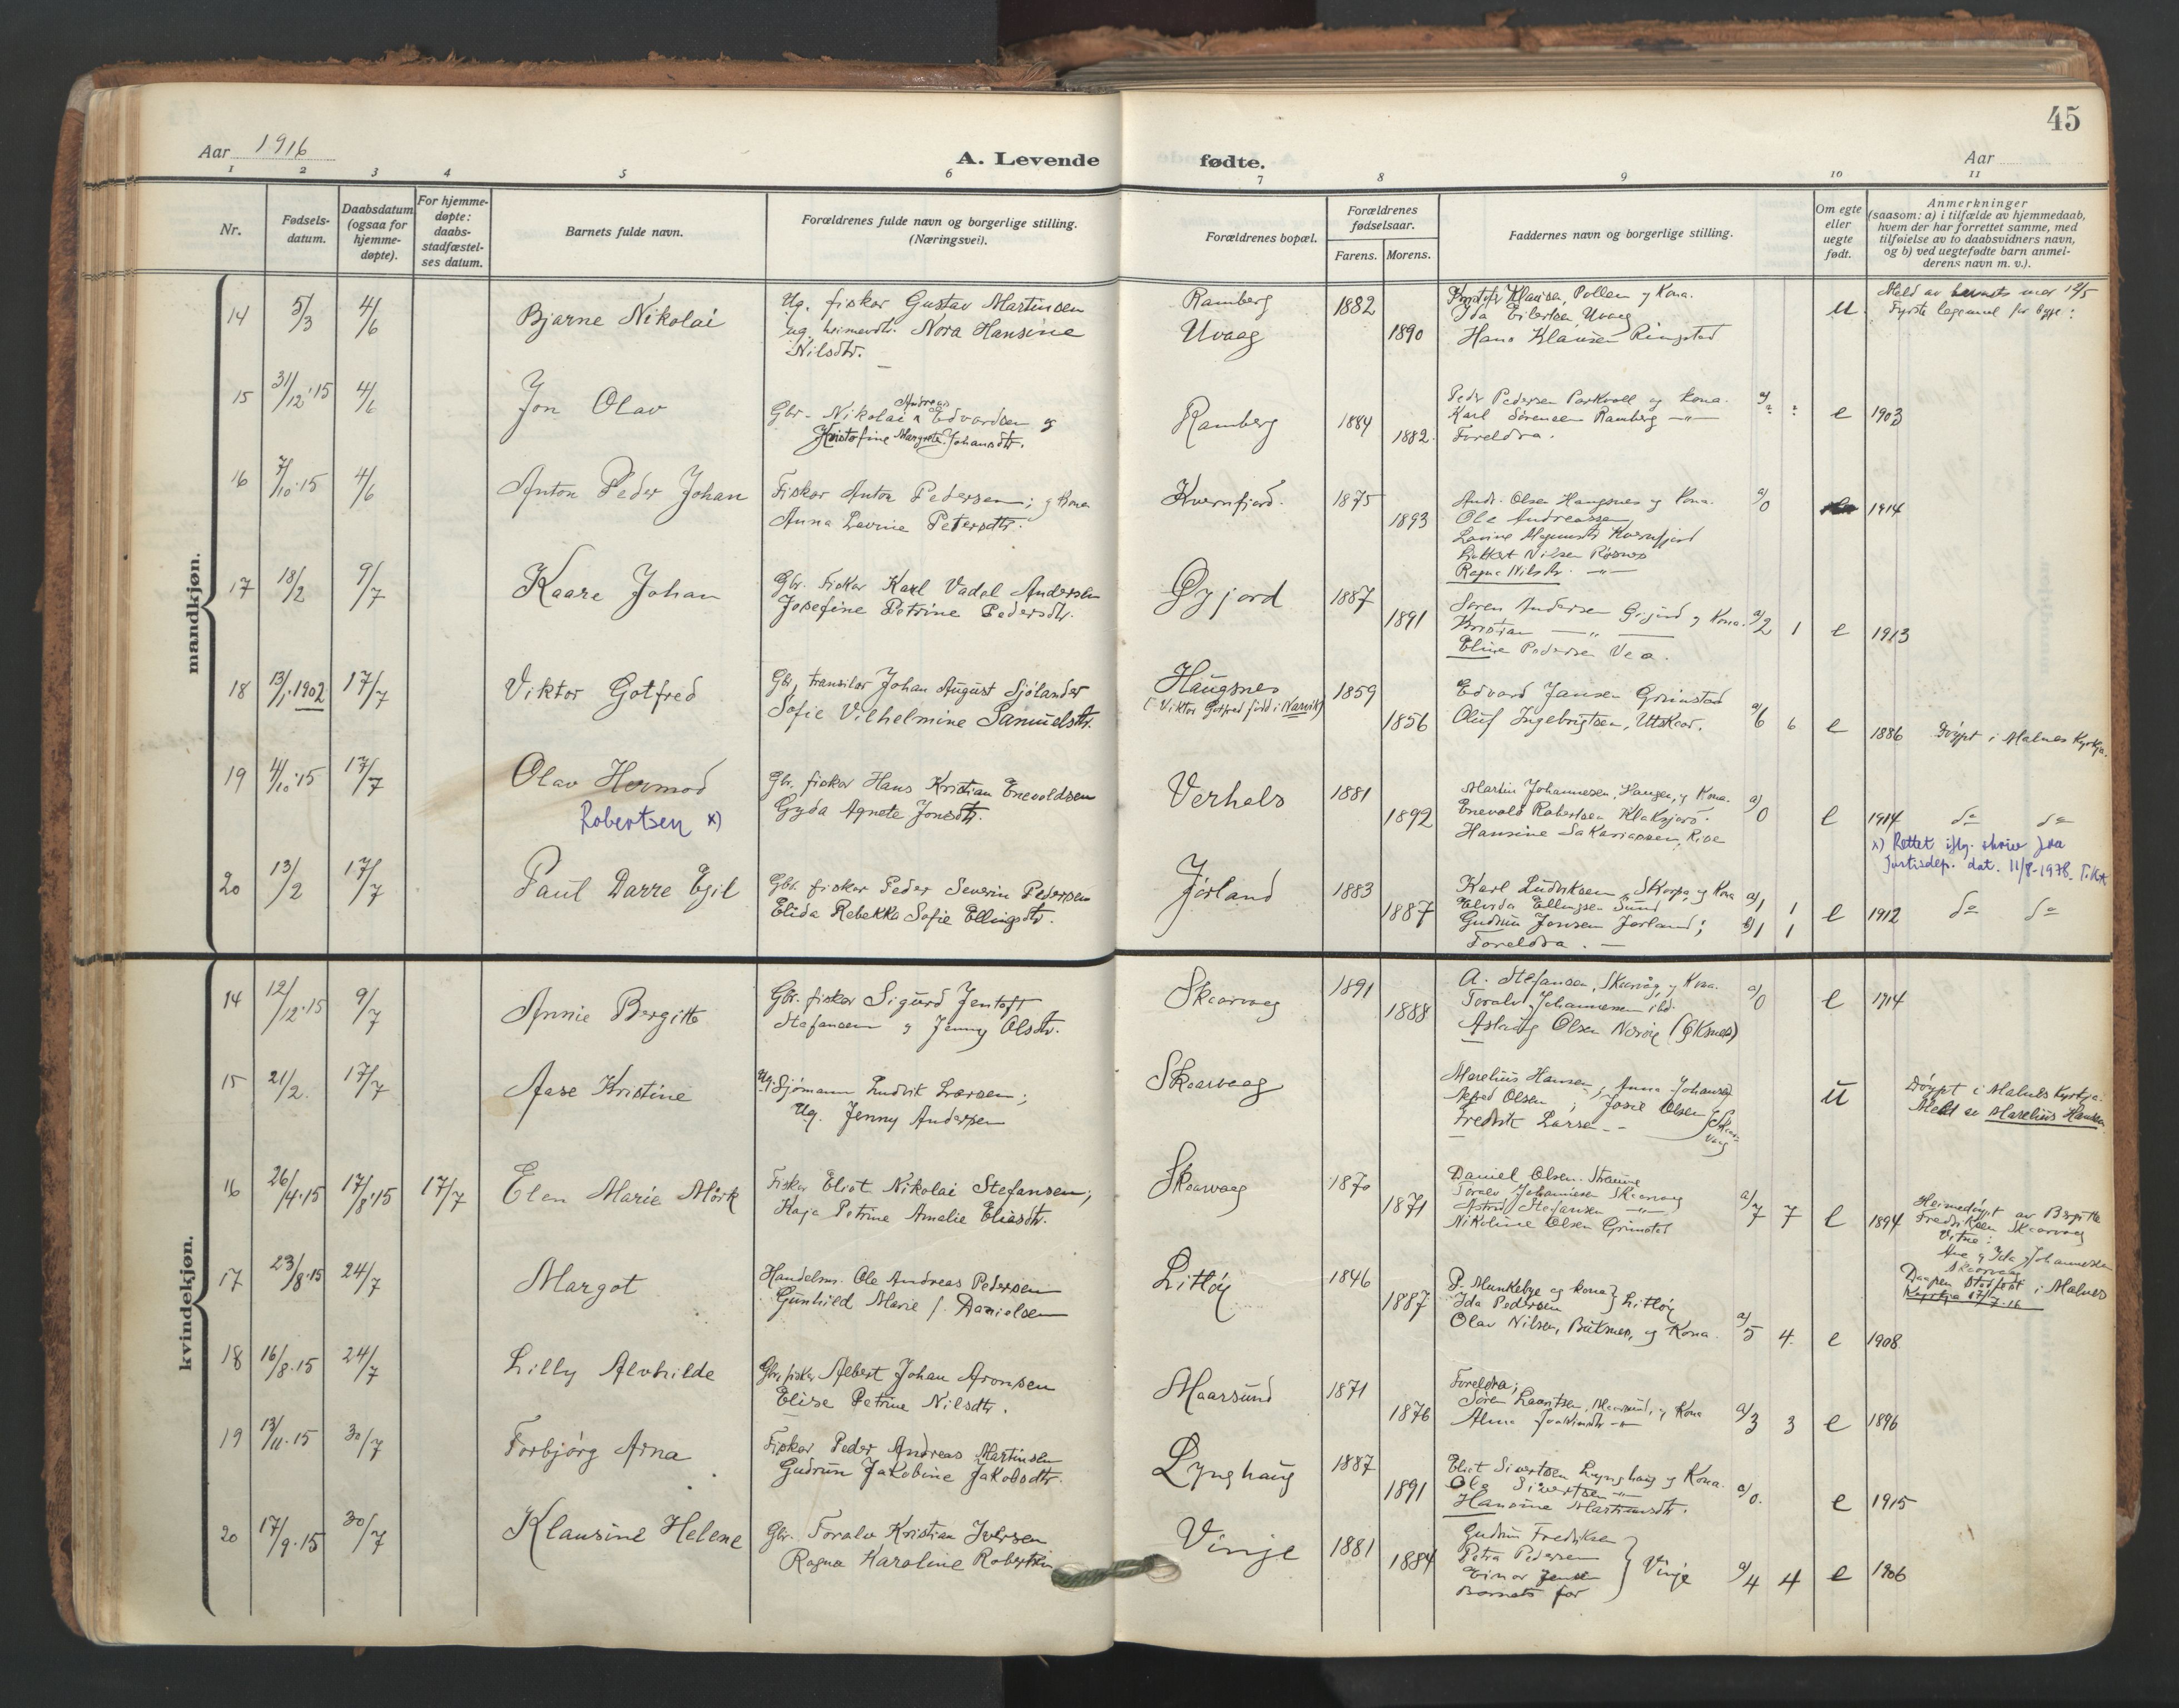 45
Aar 1916
A. Levende fødte.
Aar
1 2 3 4 5 6 7 8 9 10 11
Nr.
Fødsels-
datum.
Daabsdatum
(ogsaa for
hjemme-
døpte).
For hjemme-
døpte:
daabs-
stadfæstel-
ses datum.
Barnets fulde navn.
Forældrenes fulde navn og borgerlige stilling.
(Næringsvei).
Forældrenes bopæl.
Forældrenes
fødselsaar.
Farens. Morens.
Faddernes navn og borgerlige stilling.
Om egte
eller
uegte
født.
Anmerkninger
(saasom: a) i tilfælde av hjemmedaab,
hvem der har forrettet samme, med
tilføielse av to daabsvidners navn,
og b) ved uegtefødte barn anmel-
derens navn m. v.).
mandkjøn.
14 5/3 4/6 Bjarne Nikolai
Ug. fisker Gustav Martinsen
ug. heimevdtr. Nora Hansine
Nilsdtr.
Ramberg 1882
Uvaag 1890
Klausen, Pollen og Kona.
Ida Eilertsen Uvaag
Hans Klausen Ringstad
u.
Meld av barnets mor 12/5
15 31/12·15 4/6 Jon Olav
Gbr. Nikolai Andreas Edvardsen og
Kristofine Margrete Johansdtr.
Ramberg 1884 1882.
Peder Pedersen Parkvoll og kona.
Karl Sørensen Ramberg -"-
Foreldra.
e 1903
16 7/10·15 4/6 Anton Peder Johan
Fisker Anton Pedersen; og Kona
Anna Lovine Petersdtr.
Kvernfjord. 1875 1893
Andr. Olsen Haugsnes og Kona.
Ole Andreassen
Lovine Kvernfjord
Nilsen Rösnes
Ragna Nilsdtr. -"-
a/0 1914
17 18/2 9/7 Kaare Johan
Gbr. Fisker Karl Vadel Andersen
Josefine Petrine Pedersdtr.
Øyjord 1887 1891
Søren Andersen og Kona.
Kristian -"-
Eline Pedersen Vea.
a/2 1 e 1913
18 13/1·1902 17/7 Viktor Gotfred
Gbr, Johan August Sjölander
Sofie Vilhelmine Samuelsdtr.
Haugsnes
(Viktor Gotfred född i Narvik)
1859 1856
Edvard Jansen Grimstad
Oluf Ingebrigtsen, Utskor.
a/6 6 e 1886 Döypt i Malnes Kyrkja.
19 4/10·15 17/7 Olav Hermod
Robertsen x)
Gbr. fisker Hans Kristian Enevoldsen
Gyda Agnete Jonsdtr.
Verhals 1881 1892
Martin Johannesen, Haugen, og Kona.
Enevold Robertsen Klaksjord.
Hansine Sakariassen, Rise
a/0 e 1914 do do
x) Rettet iflg. skriv fra
Justisdep. dat. 11/8-1978.
20 13/2 17/7 Paul Darre Egil
Gbr. fisker Peder Severin Pedersen
Elida Rebekka Sofie Ellingsdtr.
Jörland 1883 1887
Karl Ludviksen, Skorpa, og Kona
Elvida Ellingsen Sund
Gudrun Jonsen Jorland;
Foreldra.
a/1 1
b/1 1
e 1912 do do
kvindekjøn.
14 12/12·15 9/7 Annie Bergitte
Gbr. fisker Sigurd Jentoft
Stefansen og Jenny Olsdtr.
Skaarvaag 1891 1888
A. Stefansen, Skarvåg, og Kona.
Toralv Johannesen ibd.
Aslaug Olsen (Öksnes)
a/0 e 1914
15 21/2. 17/7 Aase Kristine
Ug. Sjömann Ludvik Larsen;
Ug. Jenny Andersen
Skaarvaag
Marelius Hansen, Anna Johansen
Alfred Olsen; Josie Olsen
Fredrik Larsen
u
Döypt i Malnes Kyrkja.
Meld av Marelius Hansen.
16 26/4·15 17/8·15 17/7 Elen Marie Mörk
Fisker Eliot Nikolai Stefansen;
Kaja Petrine Amalie Eliasdtr.
Skaarvaag 1870 1871
Daniel Olsen. Straume
Toralv Johannesen Skaarvaag
Astrid Stefansen -"-
Nikoline Olsen Grimstad
a/7 7 e 1894
Heimedöypt av Bergitte
Fredriksen Skaarvaag
Vitne:
Ane og Ida Johannesen
Skaarvaag
Daapen stadfest i Malnes
Kyrkja 17/7.16
17 23/8·15 24/7 Margot
Handelsm. Ole Andreas Pedersen
Gunhild Marie f. Danielsen
Litlöy 1846 1887
P. Munkebye og kona } Litlöy
Ida Pedersen
Olav Nilsen, Buksnes, og Kona.
a/5 4. e 1908
18 16/8·15 24/7 Lilly Alvhilde
Gbr. fisker Albert Johan Aronsen
Elise Petrine Nilsdtr.
Maarsund 1871 1876
Foreldra;
Sören Laantsen, Maarsund, og Kona
Alma -"-
a/3 3 e 1896
19 13/11·15 30/7 Torbjörg Arna
Fisker Peder Andreas Martinsen
Gudrun Jakobine Jakobsdtr.
Lynghaug 1887 1891
Eliot Sivertsen Lynghaug og Kona.
Ole Sivertsen -"-
Hansine Martinusdtr.
a/0. e 1915
20 17/9·15 30/7 Klausine Helene
Gbr. Toralv Kristian Iversen
Ragna Karoline Robertsen
Vinje 1881 1884
Gudrun Fredriksen
Petra Pedersen
Einar Jensen
Barnets far
} Vinje
a/4 4 e 1906